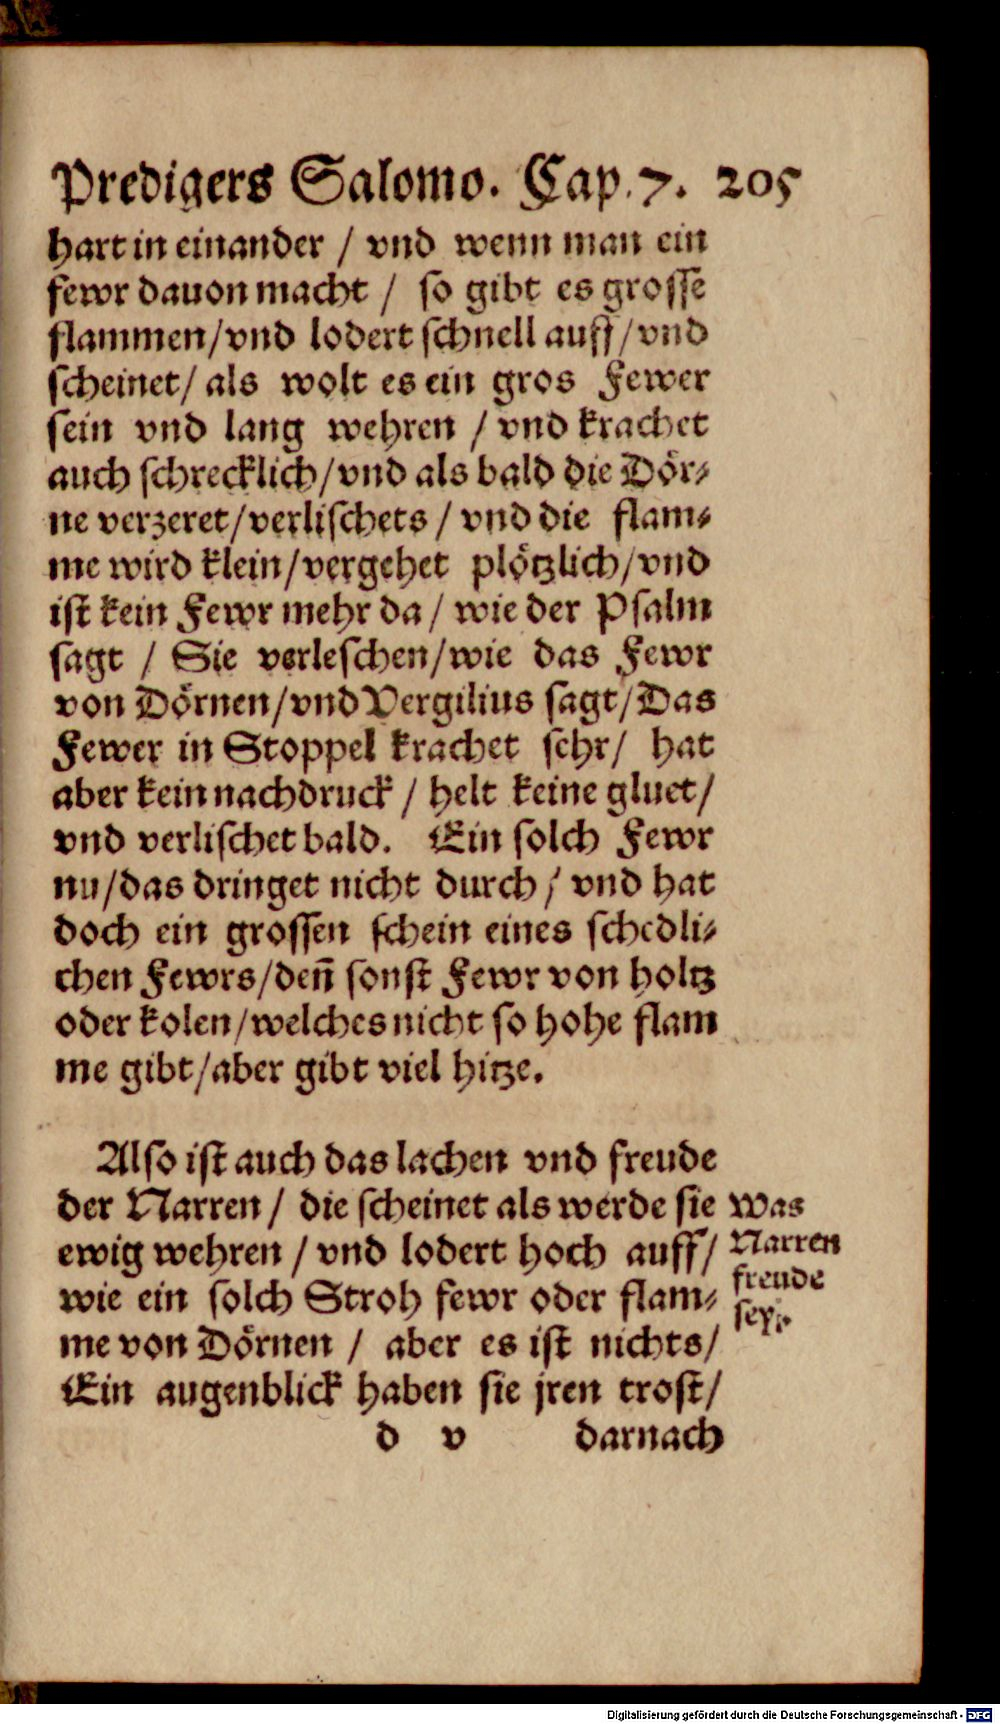 Predigers Salomo. Cap. 7. 205
hart in einander / vnd wenn man ein
fewr dauon macht / so gibt es grosse
flammen / vnd lodert schnell auff / vnd
scheinet / als wolt es ein gros Fewer
sein vnd lang wehren / vnd krachet
auch schrecklich / vnd als bald die Dör⸗
ne verzeret / verlischets / vnd die flam⸗
me wird klein / vergehet plötzlich / vnd
ist kein Fewr mehr da / wie der Psalm
sagt / Sie verleschen / wie das Fewr
von Dörnen / vnd Vergilius sagt / Das
Fewer in Stoppel krachet sehr / hat
aber kein nachdruck / helt keine gluet /
vnd verlischet bald. Ein solch Fewr
nu / das dringet nicht durch / vnd hat
doch ein grossen schein eines schedli⸗
chen Fewrs / deñ sonst Fewr von holtz
oder kolen / welches nicht so hohe flam
me gibt / aber gibt viel hitze.
Also ist auch das lachen vnd freude
der Narren / die scheinet als werde sie
ewig wehren / vnd lodert hoch auff /
wie ein solch Stroh fewr oder flam⸗
me von Dörnen / aber es ist nichts /
Ein augenblick haben sie jren trost /
Was
Narren
freude
sey.
d v darnach
Digitalisierung gefördert durch die Deutsche Forschungsgemeinschaft - DFG